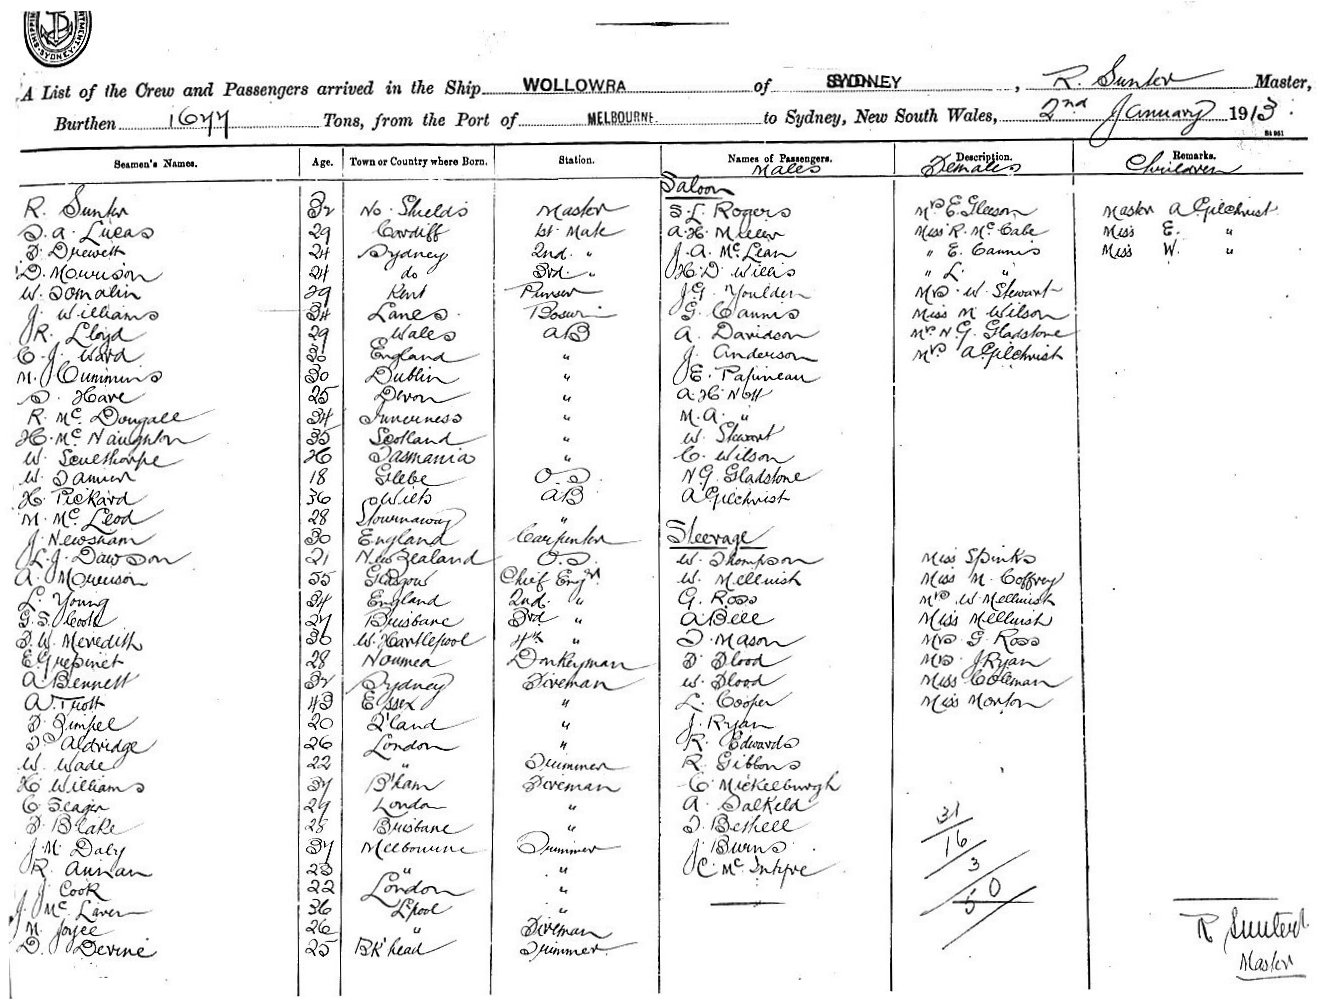 SYDNEY
A List of the Crew and Passengers arrived in the Ship WOLLOWRA of SYDNEY, R. Sunter Master,
Burthen 1677 Tons, from the Port of MELBOURNE to Sydney, New South Wales, 2nd January 1913.
Seamen's Names. Age. Town or Country where Born. Station. Names of Passengers. Description. Remarks.
Males Females Children
Saloon
R. Sunter 32 No. Shields Master S. L. Rogers Mrs E. Gleeson Master A Gilchrist
S. A. Lucas 29 Cardiff 1st Mate A. H. Miller Miss R. McCabe Miss E. "
F. Drewett 24 Sydney 2nd. " J. A. McLean " E. Cannis Miss W. "
D. Morrison 24 do 3rd. " H. D. Willis " L. "
W. Tomalin 29 Kent Purser J. G. Youlden Mrs W. Stewart
J. Williams 34 Lancs. Bosun G. Cannis Miss M Wilson
R. Lloyd 29 Wales AB A. Davidson Mrs N G. Gladstone
C. J. Ward 30 England " J. Anderson Mrs A Gilchrist
M. Cummins 30 Dublin " E. Papineau
S. Hare 25 Devon " A. H. Nott
R. McDougall 34 Inverness " M. A. "
H. McNaughton 35 Scotland " W. Stewart
W. Sculthorpe 26 Tasmania " C. Wilson
W. 18 Glebe O.S. N G. Gladstone
H. Pickard 36 Wilts AB A Gilchrist
M. McLeod 28 Stournaway "
J. Newsham 30 England Carpenter Steerage
L. J. Dawson 21 New Zealand O.S. W. Thompson Miss Spinks
A. Morrison 55 Glasgow Chief Engr. W. Mellhuish Miss M. Coffrey
L. Young 34 England 2nd. " G. Ross Mrs W Mellhuish
G. S. Cook 27 Brisbane 3rd " A Bell Miss Mellhuish
F. W. Meredith 30 W. Hartlepool 4th " T. Mason Mrs G. Ross
E Grepinet 28 Noumea Donkeyman F. Flood Mrs J Ryan
A Bennett 32 Sydney Fireman W. Flood Miss Coleman
A Trott 43 Essex " L. Cooper Miss Morton
F. Zimpel 20 Q'land " J. Ryan
T Aldridge 26 London " R. Edwards
W. Wade 22 " Trimmer R. Gibbons
H Williams 37 B'ham Fireman C. Mickelburgh
C. Seager 29 London " A. Salkeld 31
F. Blake 28 Brisbane " T. Bethell 16
J. M. Daly 37 Melbourne Trimmer J. Burns 3
R. Annan 23 " " C. McIntyre 50
J. Cook 22 London "
J. McLaren 36 L'pool "
M. Joyce 26 " Fireman R Sunter
D. Devine 25 BK'head Trimmer Master